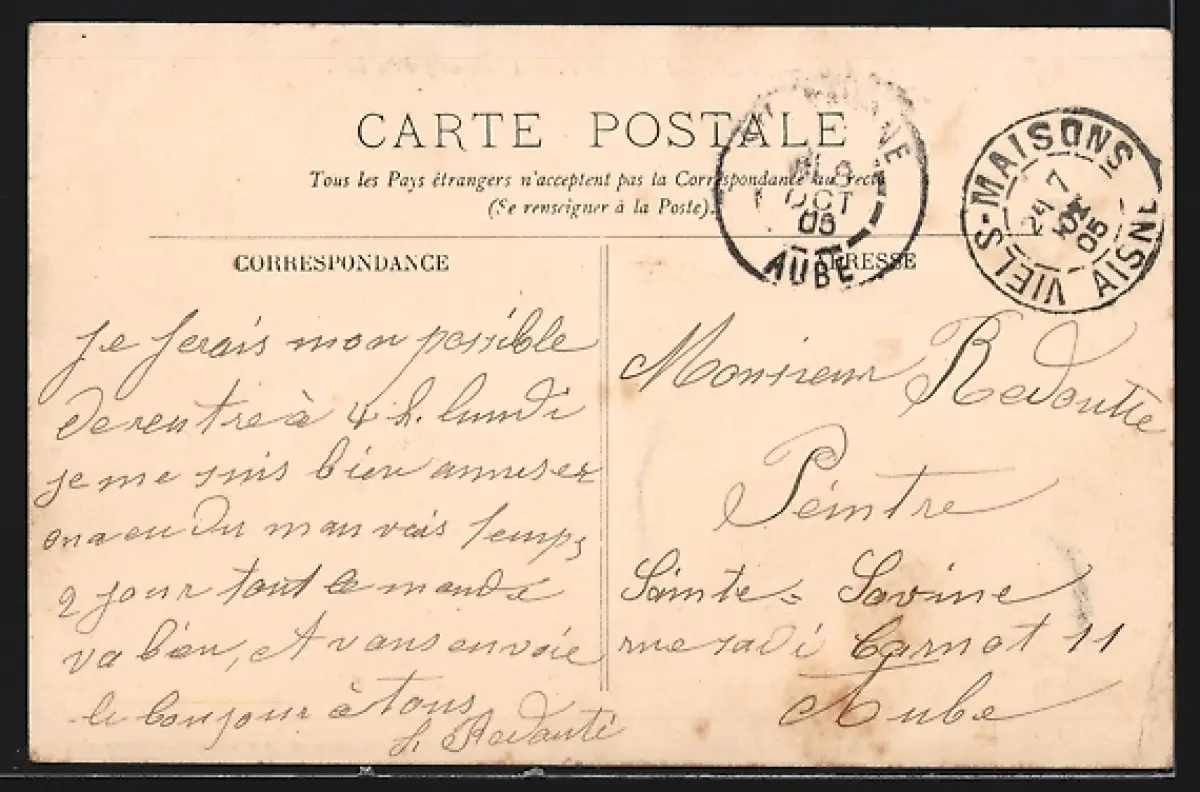 CARTE POSTALE
Tous les Pays étrangers n'acceptent pas la Correspondance au recto
(Se renseigner à la Poste).
CORRESPONDANCE
je ferais mon possible
de rentre à 4 h. lundi
je me suis bien amuser
on a eu du mauvais temps
2 jour tout le monde
va bien, et vous envoie
le bonjour à tous
Redouté
ADRESSE
Monsieur Redoutte
Peintre
Sainte-Savine
rue Sadi Carnot 11
Aube
OCT
05
AUBE
VIELS-MAISONS
AISNE
7
24
05